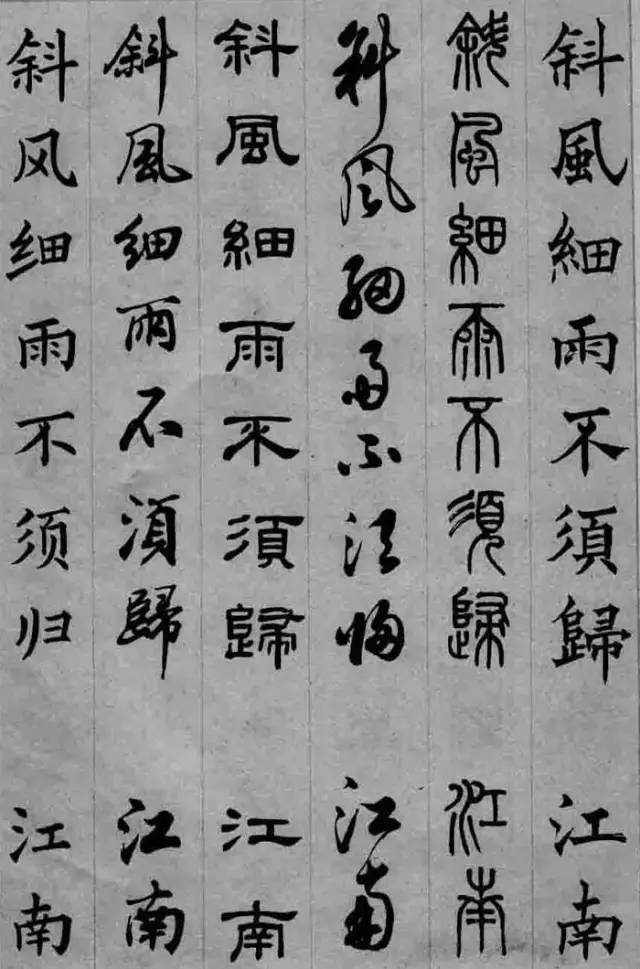 斜風細雨不須歸 江南
斜風細雨不須歸 江南
斜風細雨不須歸 江南
斜風細雨不須歸 江南
斜風細雨不須歸 江南
斜风细雨不须归 江南